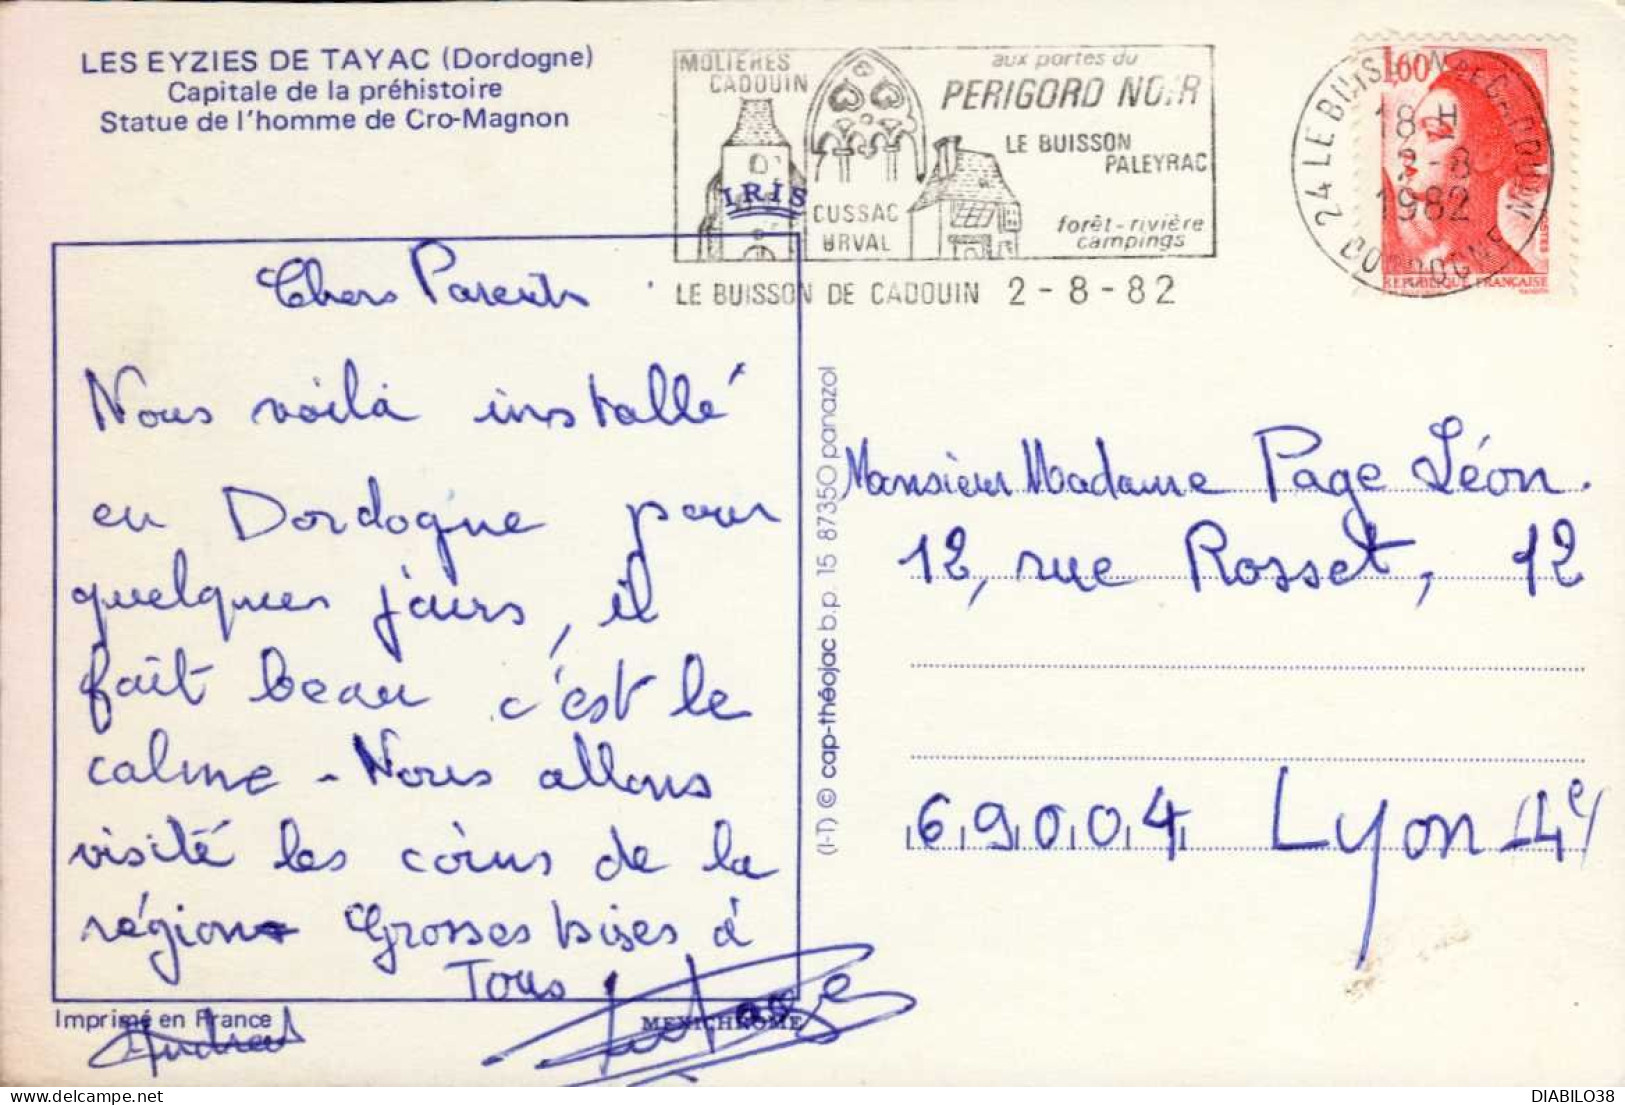 LES EYZIES DE TAYAC (Dordogne)
Capitale de la préhistoire
Statue de l'homme de Cro-Magnon
MOLIERES
CADOUIN
IRIS
CUSSAC
URVAL
aux portes du
PERIGORD NOIR
LE BUISSON
PALEYRAC
forêt - rivière
campings
LE BUISSON DE CADOUIN 2 - 8 - 82
24 LE BUISSON DE CADOUIN
18 H
2 - 8
1982
DORDOGNE
1,60
POSTES
REPUBLIQUE FRANCAISE
Chers Parents
Nous voilà installé
en Dordogne pour
quelques jours, il
fait beau c'est le
calme - Nous allons
visité les coins de la
région Grosses bises à
Tous
Imprimé en France
MEXICHROME
(I-T) © cap-théojac b.p. 15 87350 panazol
Monsieur Madame Page Léon.
12, rue Rosset, 12
69004 Lyon 4e
DIABILO38